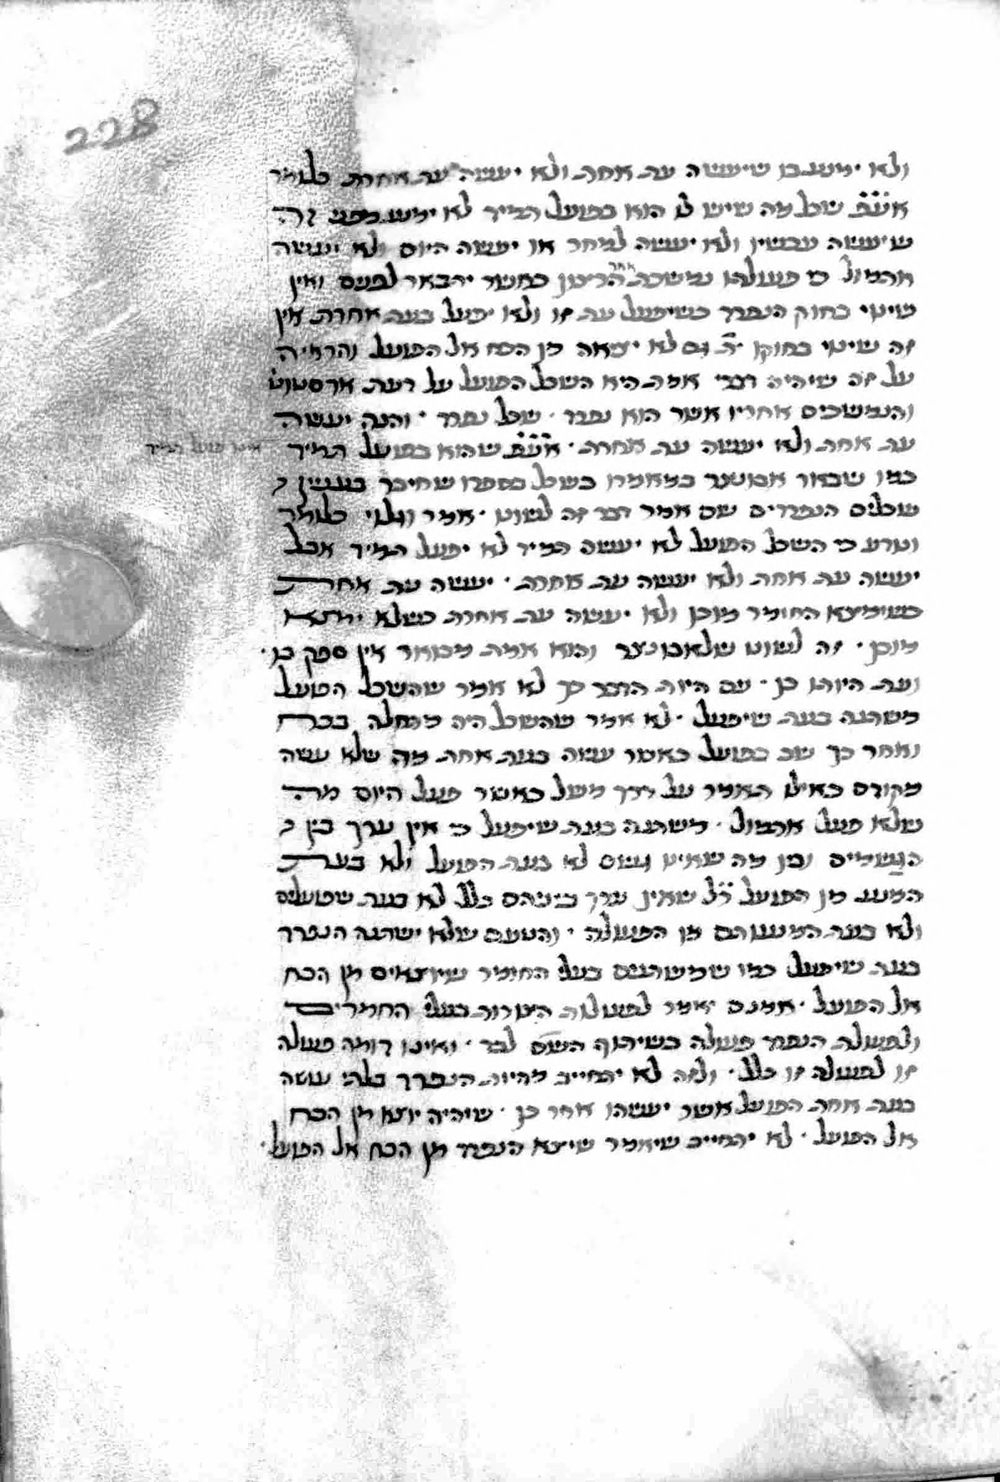 228
ולא ימנע בו שיעשה עת אחת ולא יעשה עת אחרת כלומר
אעפ שכל מה שיש לו הוא בפועל תמיד לא ימנע מפני זה
שיעשה עכשיו ולא יעשה למחר או יעשה היום ולא יעשה
אתמול כי פעולתו נמשכת אחר הרצון כאשר יתבאר לפנים ואין
שינוי בחוק הנפרד כשיפעל עת זו ולא יפעל בעת אחרת אין
זה שינוי בחוקו גם לא יציאה מן הכח אל הפועל והראיה
על זה שיהיה דבר אמת היא השכל הפועל על דעת ארסטוטו
והנמשכים אחריו אשר הוא נפרד שכל נפרד והנה יעשה
עת אחת ולא יעשה עת אחרת אעפ שהוא בפועל תמיד
אינו פועל תמיד
כמו שבאר אבונצר במאמרו בשכל בספרו שחיבר בענין
שכלים הנפרדים שם אמר דבר זה לשונו אמר וגלוי כלומר
ונודע כי השכל הפועל לא יעשה תמיד לא יפעל תמיד אבל
יעשה עת אחת ולא יעשה עת אחרת יעשה עת אחת
כשימצא החומר מוכן ולא יעשה עת אחרת כשלא ימצא
מוכן זה לשונו שלאבונצר והוא אמת מבואר אין ספק בו
ועת היותו כן עם היות הדבר כך לא אמר שהשכל הפועל
משתנה בעת שיפעל לא אמר שהשכל היה מתחלה בכח
ואחר כך שב בפועל כאשר עשה בעת אחת מה שלא עשה
מקודם כאילו תאמר על דרך משל כאשר פעל היום מה
שלא פעל אתמול משתנה בעת שיפעל כי אין ערך בין
הגשמיים ובין מה שאינו גשם לא בעת הפועל ולא בעת
המנע מן הפועל רל שאין ערך ביניהם כלל לא בעת שפועלים
ולא בעת המנעותם מן הפעולה והטעם שלא ישתנה הנפרד
בעת שיפעל כמו שמשתנים בעלי החומר שיוצאים מן הכח
אל הפועל אמנם יאמר לפעולות הצורות בעלי החמרים
ולפעולת הנפרד פעולה בשיתוף השם לבד ואינו דומה פעולה
זו לפעולה זו כלל ולזה לא יתחייב מהיות הנפרד בלתי עושה
בעת אחת הפועל אשר יעשהו אחר כן שיהיה יוצא מן הכח
אל הפועל לא יתחייב שיאמר שיצא הנפרד מן הכח אל הפועל